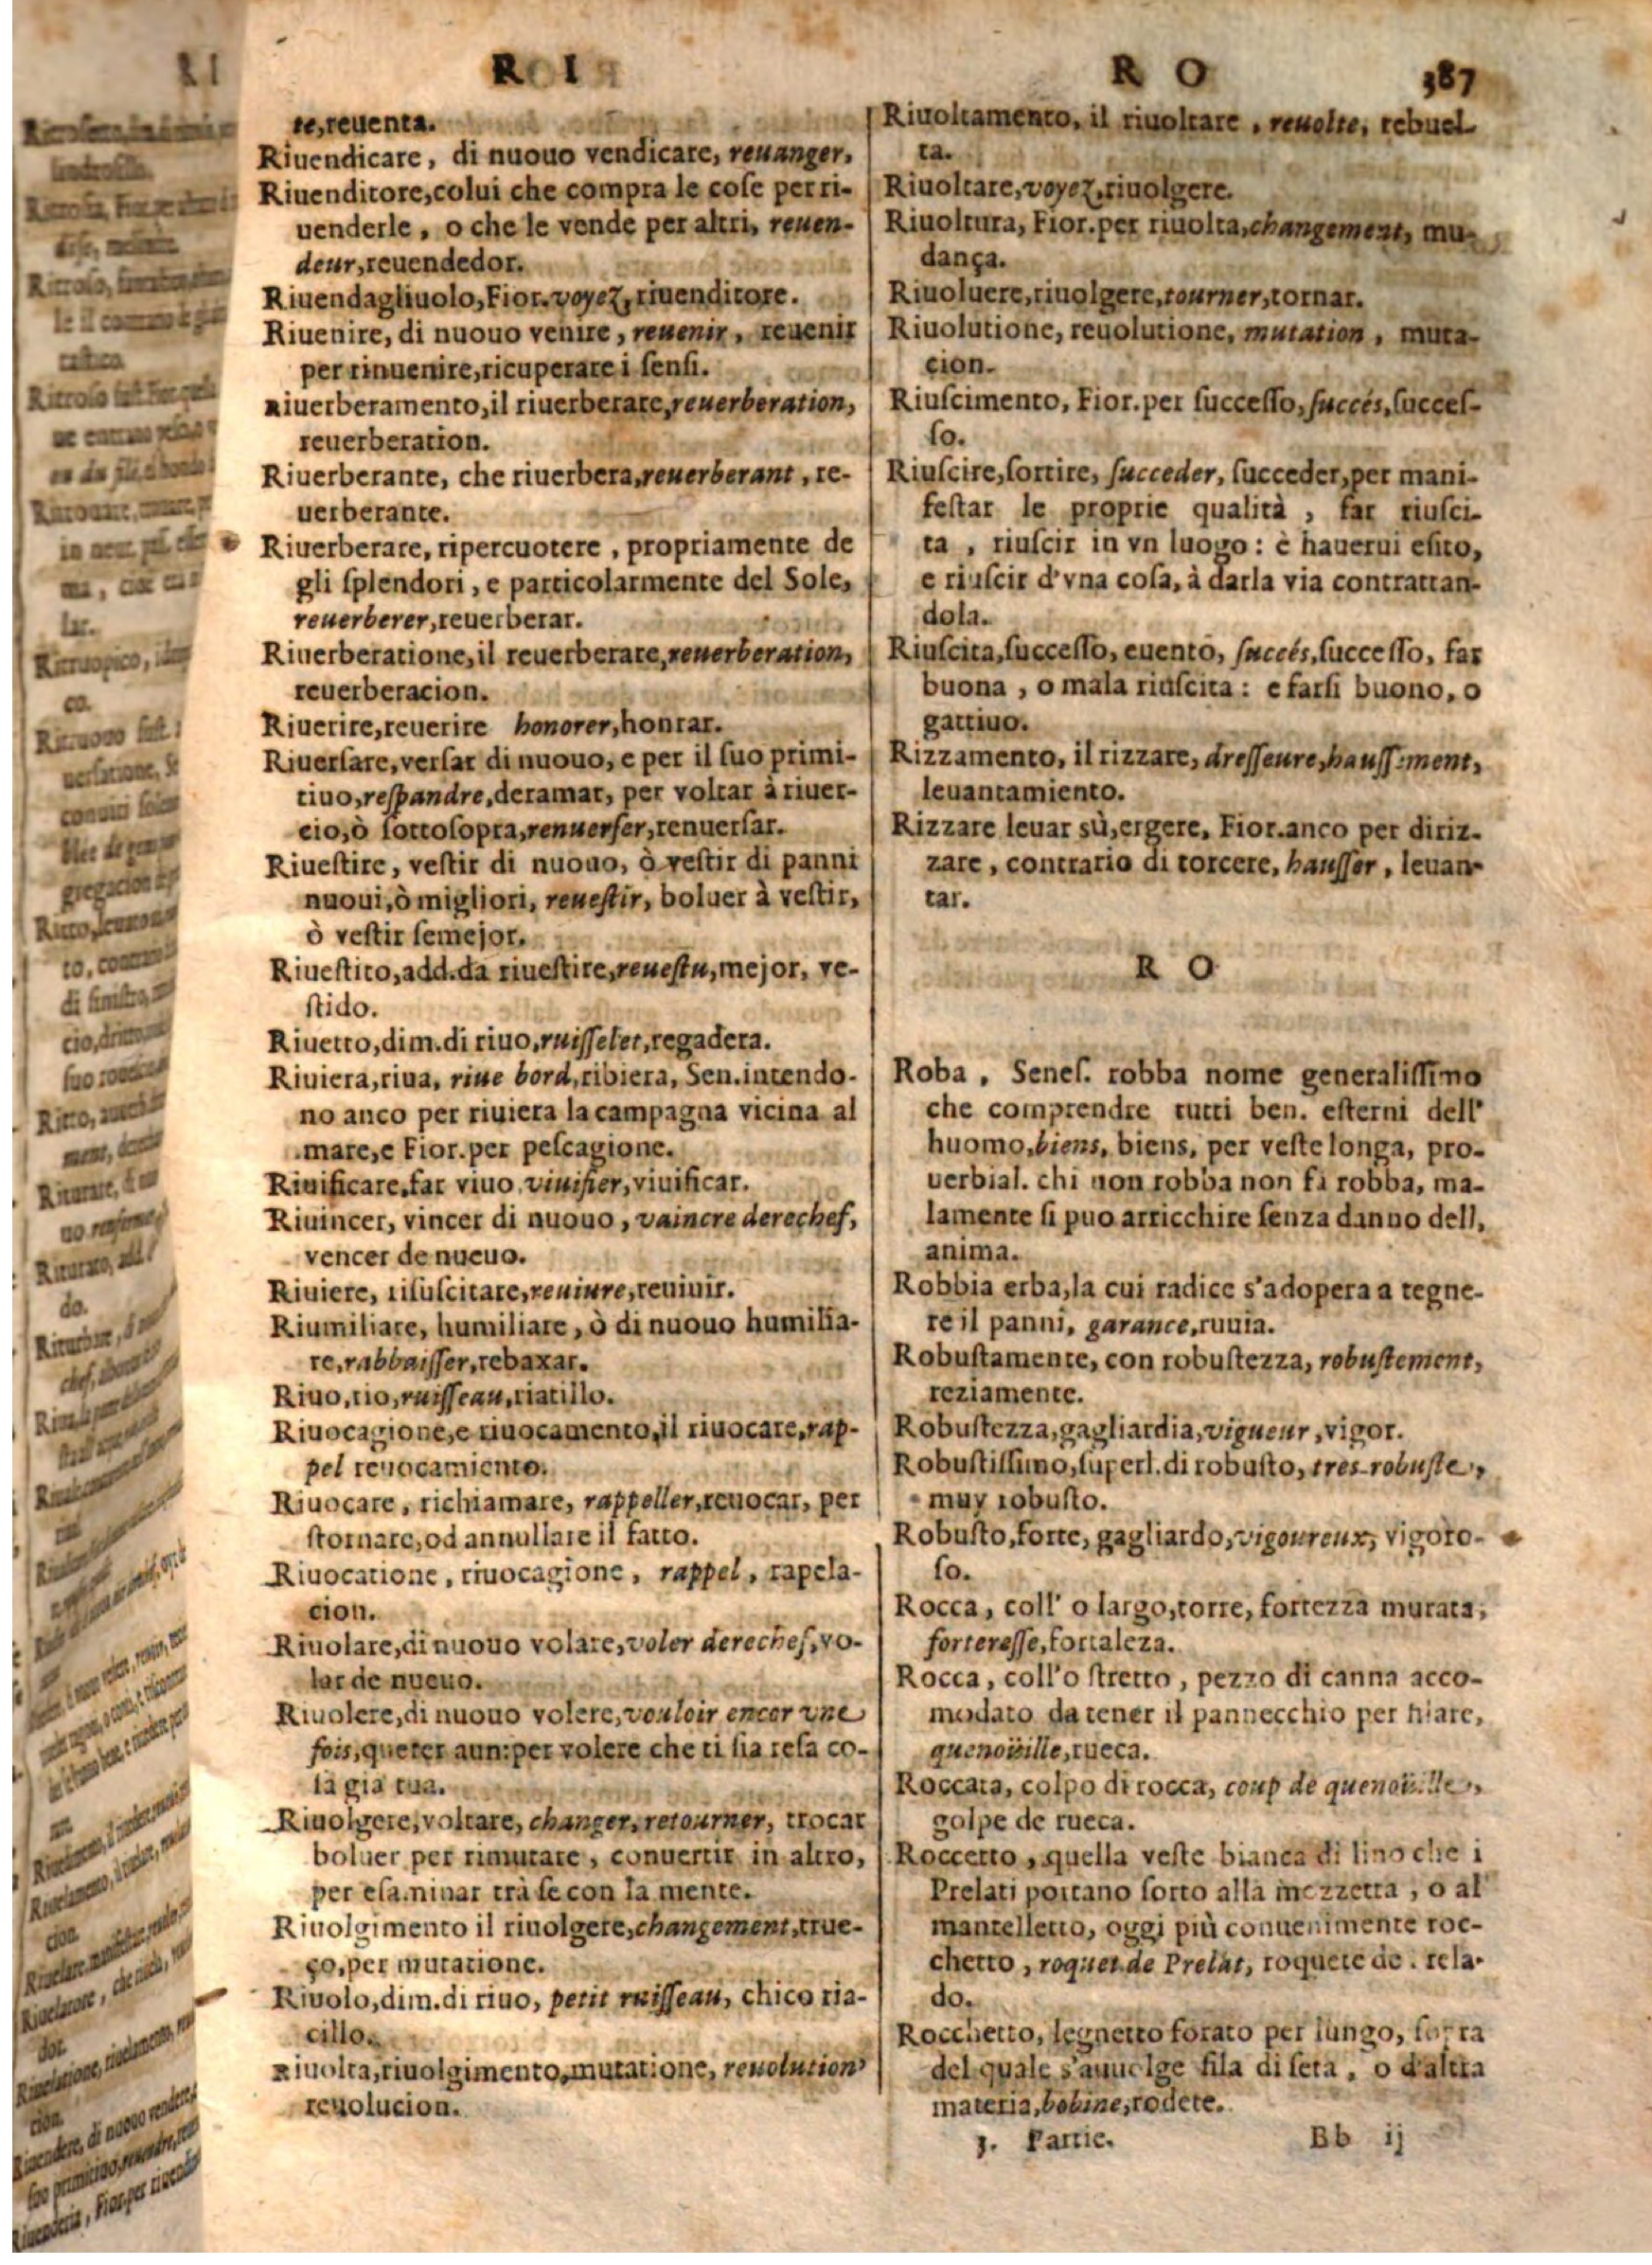 R I
te,reuenta.
Riuendicare, di nuouo vendicare, reuanger,
Riuenditore,colui che compra le coſe per ri-
uenderle, o che le vende per altri, reuen-
deur,reuendedor.
Riuendagliuolo,Fior.voyez,riuenditore.
Riuenire, di nuouo venire, reuenir, reuenir
per rinuenire,ricuperare i ſenſi.
Riuerberamento,il riuerberare,reuerberation,
reuerberation.
Riuerberante, che riuerbera,reuerberant, re-
uerberante.
Riuerberare, ripercuotere, propriamente de
gli ſplendori, e particolarmente del Sole,
reuerberer,reuerberar.
Riuerberatione,il reuerberare,reuerberation,
reuerberacion.
Riuerire,reuerire honorer,honrar.
Riuerſare,verſar di nuouo, e per il ſuo primi-
tiuo,reſpandre,deramar, per voltar à riuer-
cio,ò ſottoſopra,renuerſer,renuerſar.
Riueſtire, veſtir di nuouo, ò veſtir di panni
nuoui,ò migliori, reueſtir, boluer à veſtir,
ò veſtir ſemejor.
Riueſtito,add.da riueſtire,reueſtu,mejor, ve-
ſtido.
Riuetto,dim.di riuo,ruiſſelet,regadera.
Riuiera,riua, riue bord,ribiera, Sen.intendo-
no anco per riuiera la campagna vicina al
mare,e Fior.per peſcagione.
Riuificare,far viuo,viuifier,viuificar.
Riuincer, vincer di nuouo, vaincre derechef,
vencer de nueuo.
Riuiere, riſuſcitare,reuiure,reuiuir.
Riumiliare, humiliare, ò di nuouo humilia-
re,rabbaiſſer,rebaxar.
Riuo,rio,ruiſſeau,riatillo.
Riuocagione,e riuocamento,il riuocare,rap-
pel reuocamiento.
Riuocare, richiamare, rappeller,reuocar, per
ſtornare,od annullare il fatto.
Riuocatione, riuocagione, rappel, rapela-
cion.
Riuolare,di nuouo volare,voler derechef,vo-
lar de nueuo.
Riuolere,di nuouo volere,vouloir encor vne
fois,querer aun:per volere che ti ſia reſa co-
ſa gia tua.
Riuolgere,voltare, changer,retourner, trocar
boluer per rimutare, conuertir in altro,
per eſaminar trà ſe con la mente.
Riuolgimento il riuolgere,changement,true-
ço,per mutatione.
Riuolo,dim.di riuo, petit ruiſſeau, chico ria-
cillo.
Riuolta,riuolgimento,mutatione, reuolution,
reuolucion.
R O 387
Riuoltamento, il riuoltare, reuolte, rebuel-
ta.
Riuoltare,voyez,riuolgere.
Riuoltura, Fior.per riuolta,changement, mu-
dança.
Riuoluere,riuolgere,tourner,tornar.
Riuolutione, reuolutione, mutation, muta-
cion.
Riuſcimento, Fior.per ſucceſſo, ſuccés,ſucceſ-
ſo.
Riuſcire,ſortire, ſucceder, ſucceder,per mani-
feſtar le proprie qualità, far riuſci-
ta, riuſcir in vn luogo: è hauerui eſito,
e riuſcir d'vna coſa, à darla via contrattan-
dola.
Riuſcita,ſucceſſo, euento, ſuccés,ſucceſſo, far
buona, o mala riuſcita: e farſi buono, o
gattiuo.
Rizzamento, il rizzare, dreſſeure,hauſſement,
leuantamiento.
Rizzare leuar sù,ergere, Fior.anco per diriz-
zare, contrario di torcere, hauſſer, leuan-
tar.
R O
Roba, Seneſ. robba nome generaliſſimo
che comprendre tutti ben. eſterni dell'
huomo,biens, biens, per veſte longa, pro-
uerbial. chi non robba non fa robba, ma-
lamente ſi puo arricchire ſenza danno dell,
anima.
Robbia erba,la cui radice s'adopera a tegne-
re il panni, garance,ruuia.
Robuſtamente, con robuſtezza, robuſtement,
reziamente.
Robuſtezza,gagliardia,vigueur,vigor.
Robuſtiſſimo,ſuperl.di robuſto, tres-robuſte,
muy robuſto.
Robuſto,forte, gagliardo,vigoureux, vigoro-
ſo.
Rocca, coll' o largo,torre, fortezza murata,
fortereſſe,fortaleza.
Rocca, coll'o ſtretto, pezzo di canna acco-
modato da tener il pannecchio per filare,
quenoüille,rueca.
Roccata, colpo di rocca, coup de quenoüille,
golpe de rueca.
Roccetto, quella veſte bianca di lino che i
Prelati portano ſotto alla mezzetta, o al
mantelletto, oggi più conuenimente roc-
chetto, roquet de Prelat, roquete de . rela-
do.
Rocchetto, legnetto forato per lungo, ſopra
del quale s'auuolge fila di ſeta, o d'altra
materia,bobine,rodete.
3. Partie. Bb ij